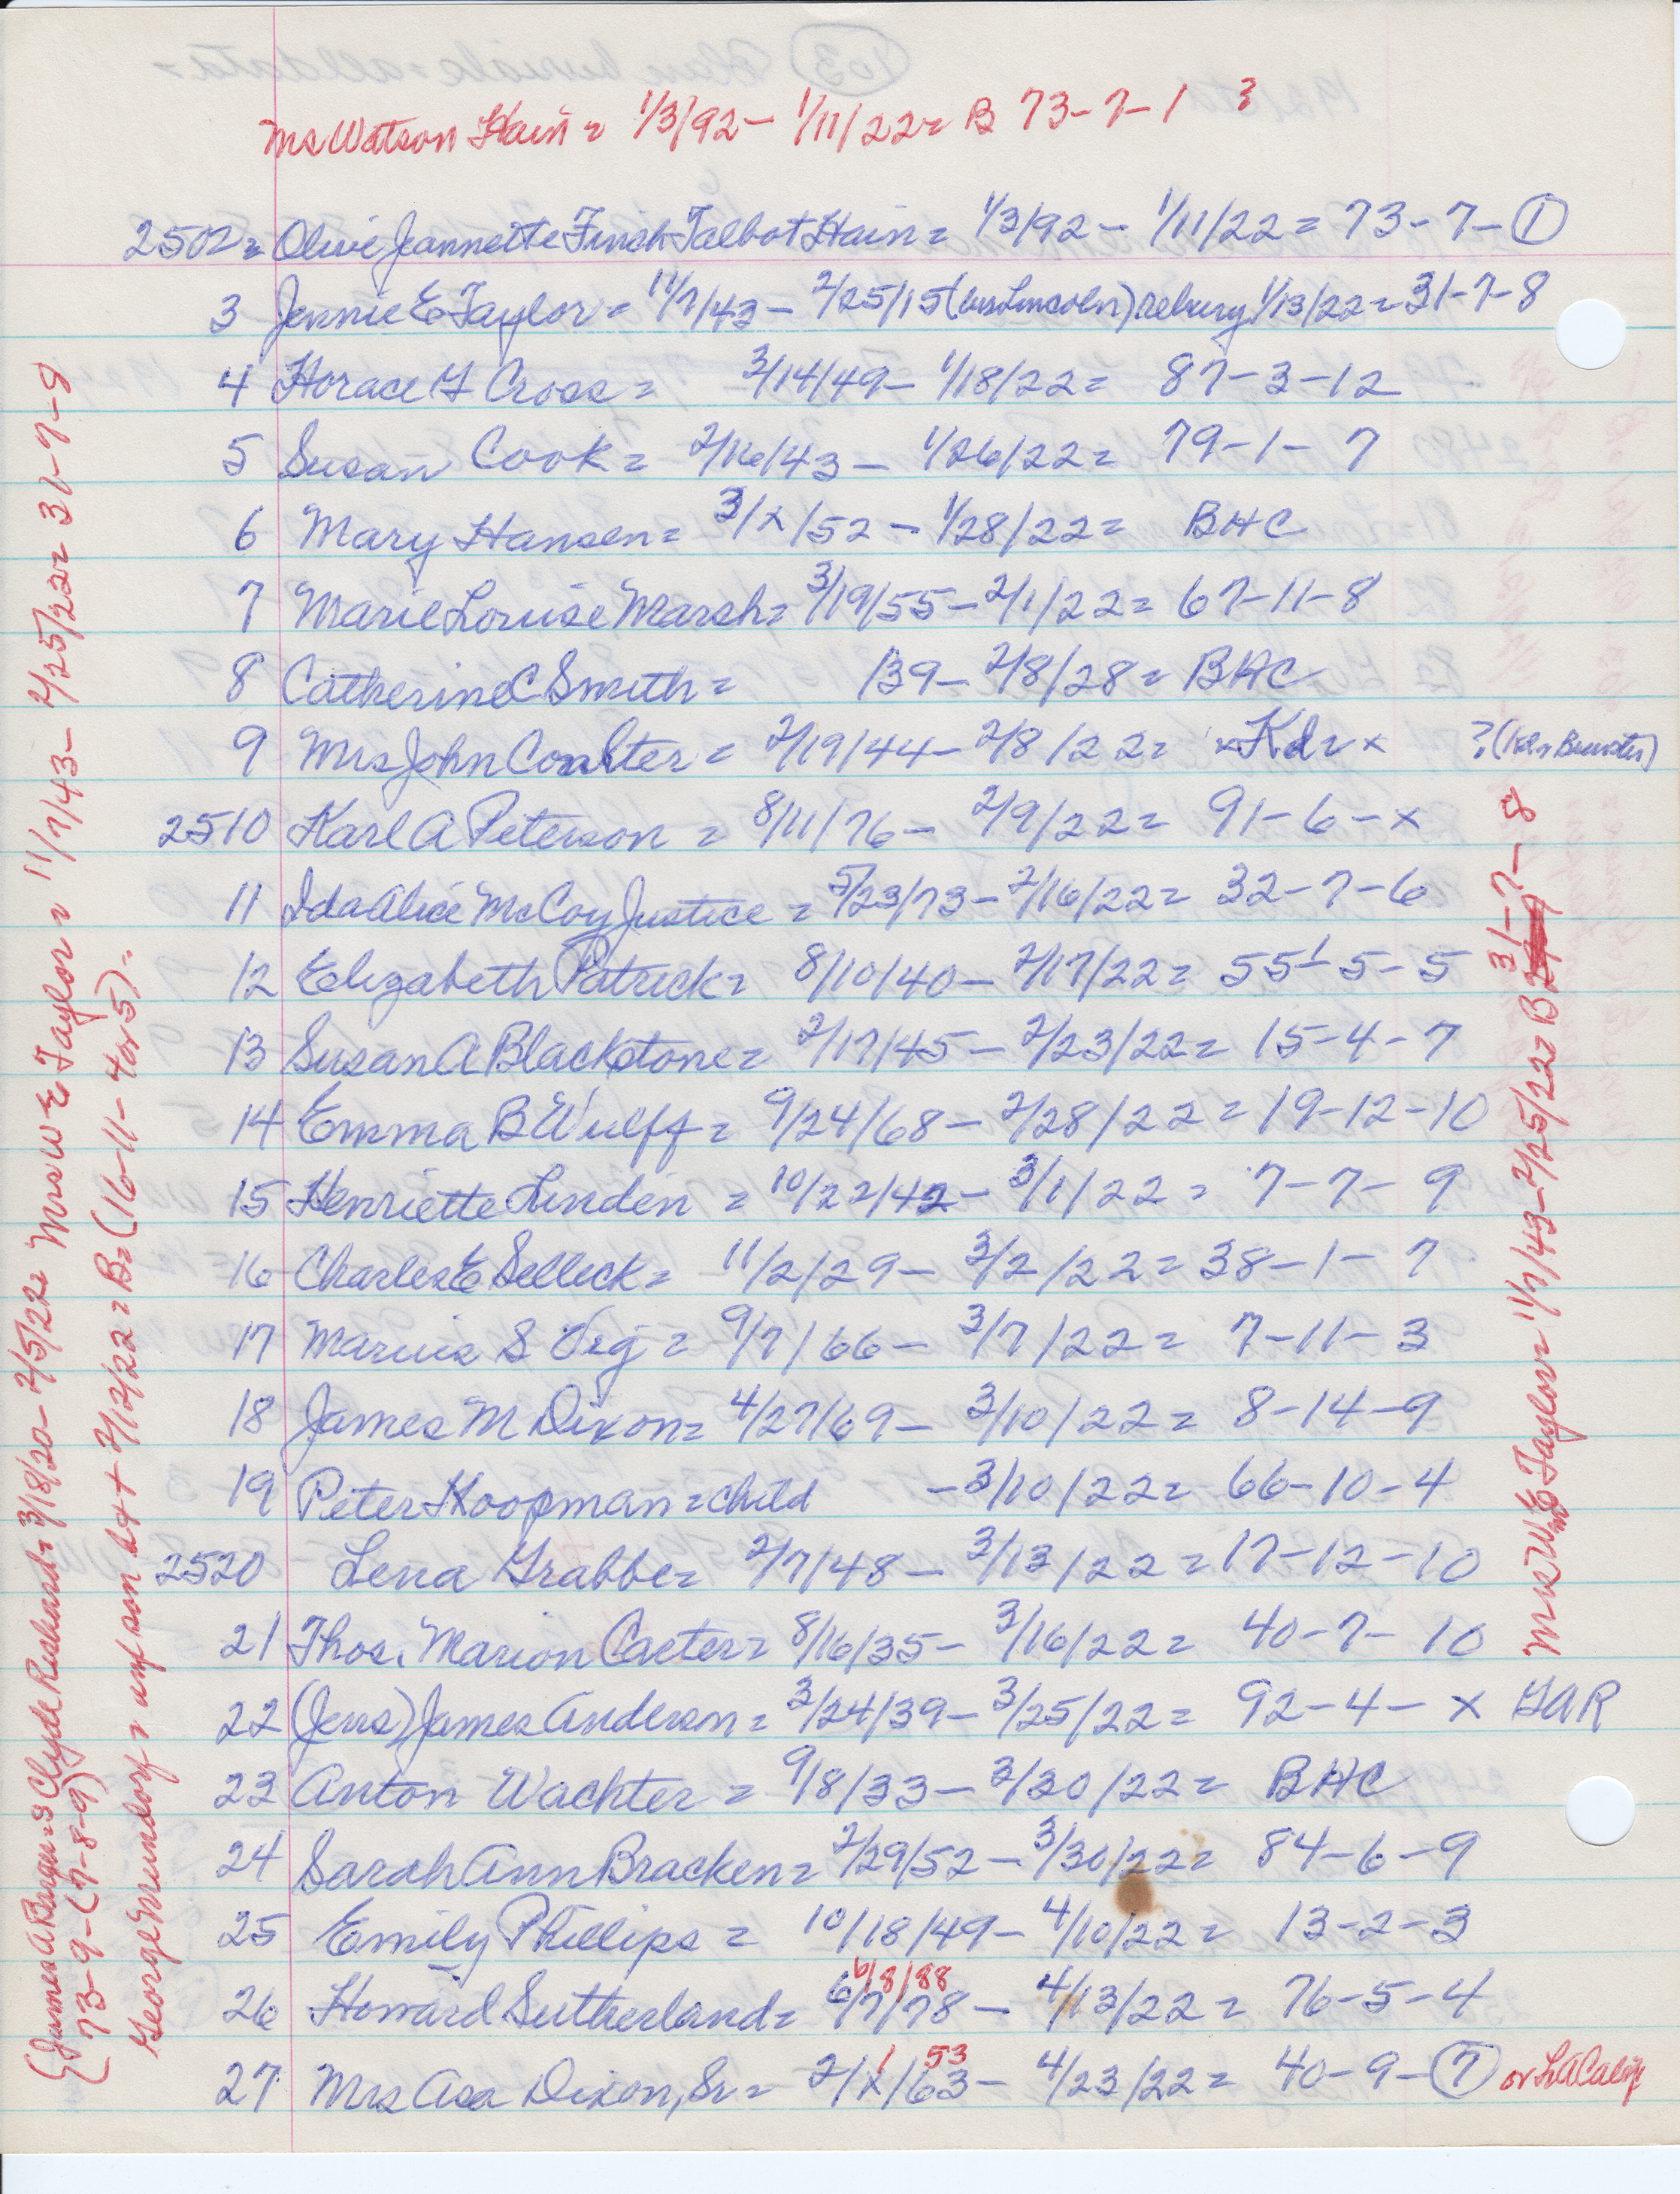 Ms Watson Hain = 1/3/92 - 1/11/22 = B 73-7-1 ?
2502 = Olive Jannette Finch Talbot Hain = 1/3/92 - 1/11/22 = 73-7-①
3 Jennie E Taylor = 11/7/43 - 2/25/15 (bur Lincoln) rebury 1/13/22 = 31-7-8
4 Horace F Cross = 3/14/49 - 1/18/22 = 87-3-12
5 Susan Cook = 2/16/43 - 1/26/22 = 79-1-7
6 Mary Hansen = 3/x/52 - 1/28/22 = BHC
7 Marie Louise Marsh = 3/19/55 - 2/1/22 = 67-11-8
8 Catherine C Smith = /39 - 2/8/28 = BHC
9 Mrs John Coulter = 2/19/44 - 2/8/22 = x Kd = x ? (Kd = Brewster)
2510 Karl A Peterson = 8/11/76 - 2/9/22 = 91-6-x
11 Ida Alice McCoy Justice = 5/23/73 - 2/16/22 = 32-7-6
12 Elizabeth Patrick = 8/10/40 - 2/17/22 = 55-5-5
13 Susan A Blackstone = 2/17/45 - 2/23/22 = 15-4-7
14 Emma B Wulff = 9/24/68 - 2/28/22 = 19-12-10
15 Henriette Linden = 10/22/42 - 3/1/22 = 7-7-9
16 Charles E Selleck = 11/2/29 - 3/2/22 = 38-1-7
17 Marius S Vig = 9/7/66 - 3/7/22 = 7-11-3
18 James M Dixon = 4/27/69 - 3/10/22 = 8-14-9
19 Peter Koopman = child - 3/10/22 = 66-10-4
2520 Lena Grabbe = 2/7/48 - 3/13/22 = 17-12-10
21 Thos. Marion Carter = 8/16/35 - 3/16/22 = 40-7-10
22 (Jens) James Anderson = 3/24/39 - 3/25/22 = 92-4-x GAR
23 Anton Wachter = 9/8/33 - 3/30/22 = BHC
24 Sarah Ann Bracken = 2/29/52 - 3/30/22 = 84-6-9
25 Emily Phillips = 10/18/49 - 4/10/22 = 13-2-3
6/8/88
26 Howard Sutherland = 6/7/78 - 4/13/22 = 76-5-4
1 53
27 Mrs Asa Dixon, Sr = 2/x/63 - 4/23/22 = 40-9-⑦ or LA Calif
{James A = Clyde Richard = 3/18/20 - 2/5/22 = Mrs W E Taylor = 11/7/43 - 2/25/22 = 31-7-8
73-9-(7-8-9)
George = inf son b + 2/12/22 = B = (16-11-4 or 5).
Mrs W E Taylor = 11/7/43 - 2/25/22 = B 31-7-8